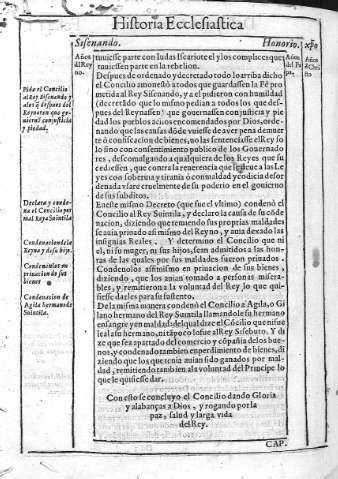 Historia Ecclesiastica
Sisenando.
Honorio.
Años del Rey no.
Años del Pa pa.
Años de Christo
tuuiesse parte con Iudas Iscariote el y los complaces que
tuuiessen parte en la rebelion.
Despues de ordenado y decretado todo lo arriba dicho
el Concilio amonestò a todos que guardassen la Fè pro
metida al Rey Sisenando, y a el pidieron con humildad
(decretãdo que lo mismo pedian a todos los que des-
pues del Reynassen) que gouernassen con justicia y pie
dad los pueblos a ellos encomendados por Dios, orde-
nando que las causas dõde vuiesse de auer pena de muer
te ò confiscacion de bienes, no las sentenciasse el Rey so
lo sino con consentimiento publico de los Gouernado
res, descomulgando a qualquiera de los Reyes que su
cediessen, que contra la reuerencia que se deue a las Le
yes con soberuia y tirania ò con maldad y codicia desor
denada vsare cruelmente de su poderio en el gouierno
de sus subditos.
En este mismo Decreto (que fue el vltimo) condenò el
Concilio al Rey Suintila, y declaro la causa de su cõde
nacion, diziendo que temiendo sus proprias maldades
se auia priuado assi mismo del Reyno, y auia dexado las
insignias Reales. Y determino el Concilio que ni
el, ni su muger, ni sus hijos, sean admitidos a las hon-
ras de las quales por sus maldades fueron priuados.
Condenolos assimismo en priuacion de sus bienes,
diziendo, que los auian tomado a personas misera-
bles, y remitieron a la voluntad del Rey lo que qui-
siesse darles para su sustento.
De la misma manera condenò el Concilio a Agila, o Gi
lano hermano del Rey Suintila llamandole su hermano
en sangre y en maldades del qual dize el Cõcilio que ni fue
leal a su hermano, ni tãpoco lo fue al Rey Sisebuto. Y di
ze que sea apartado del comercio y cõpañia de los bue-
nos, y condenado tambien en perdimiento de bienes, di
ziendo que los que tenia auian sido ganados por mal-
dad, remitiendo tambien a la voluntad del Principe lo
que le quisiesse dar.
Con esto se concluyo el Concilio dando Gloria
y alabanças a Dios, y rogando por la
paz, salud y larga vida
del Rey.
CAP.
Pide el Concilio
al Rey Sisenando y
a los q̃ despues del
Reynaren que go-
uiernen con justicia
y piedad.
Declara y conde-
na el Concilio por
mal Rey a Suintila
Condenacion de la
Reyna y de su hijo.
Condenalos en
priuacion de sus
bienes
Condenacion de
Agila hermano de
Suintila.